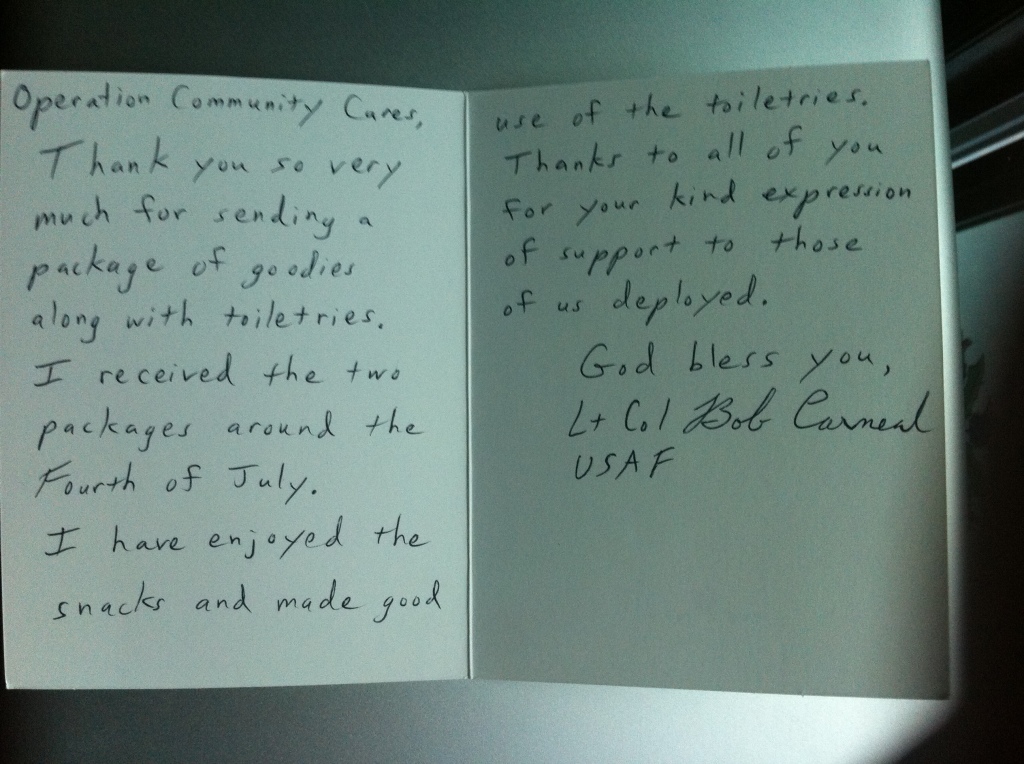 Operation Community Cares,
Thank you so very
much for sending a
package of goodies
along with toiletries.
I received the two
packages around the
Fourth of July.
I have enjoyed the
snacks and made good
use of the toiletries.
Thanks to all of you
for your kind expression
of support to those
of us deployed.
God bless you,
Lt Col Bob Carneal
USAF